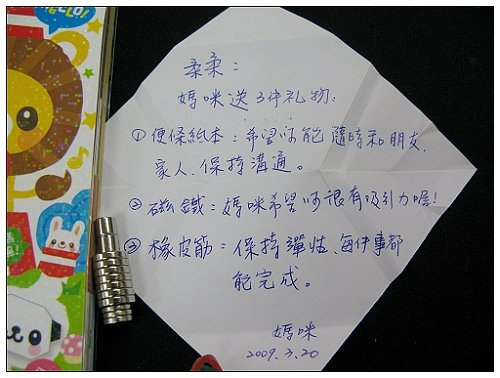 柔柔：
媽咪送3件礼物.
①便條紙本：希望妳能隨時和朋友.
家人.保持溝通。
②磁鐵：媽咪希望妳很有吸引力喔!
③橡皮筋：保持彈性、每件事都
能完成。
媽咪
2009.3.20
HELLO!